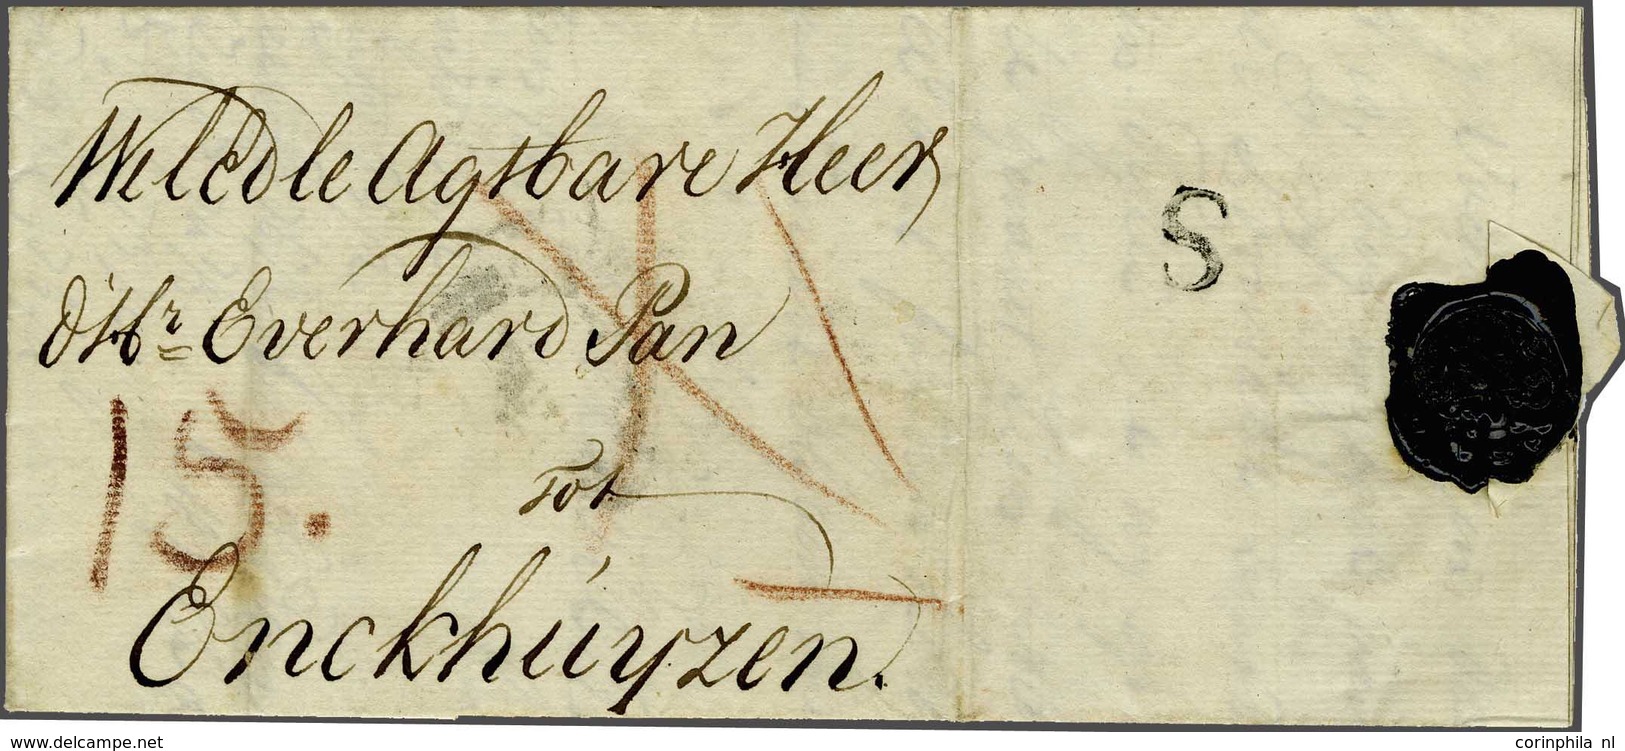 WelEdle Agtbare Heer
d'Hr. Everhard Pan
15.
Tot
Enckhúyzen.
S
www.delcampe.net
corinphila nl